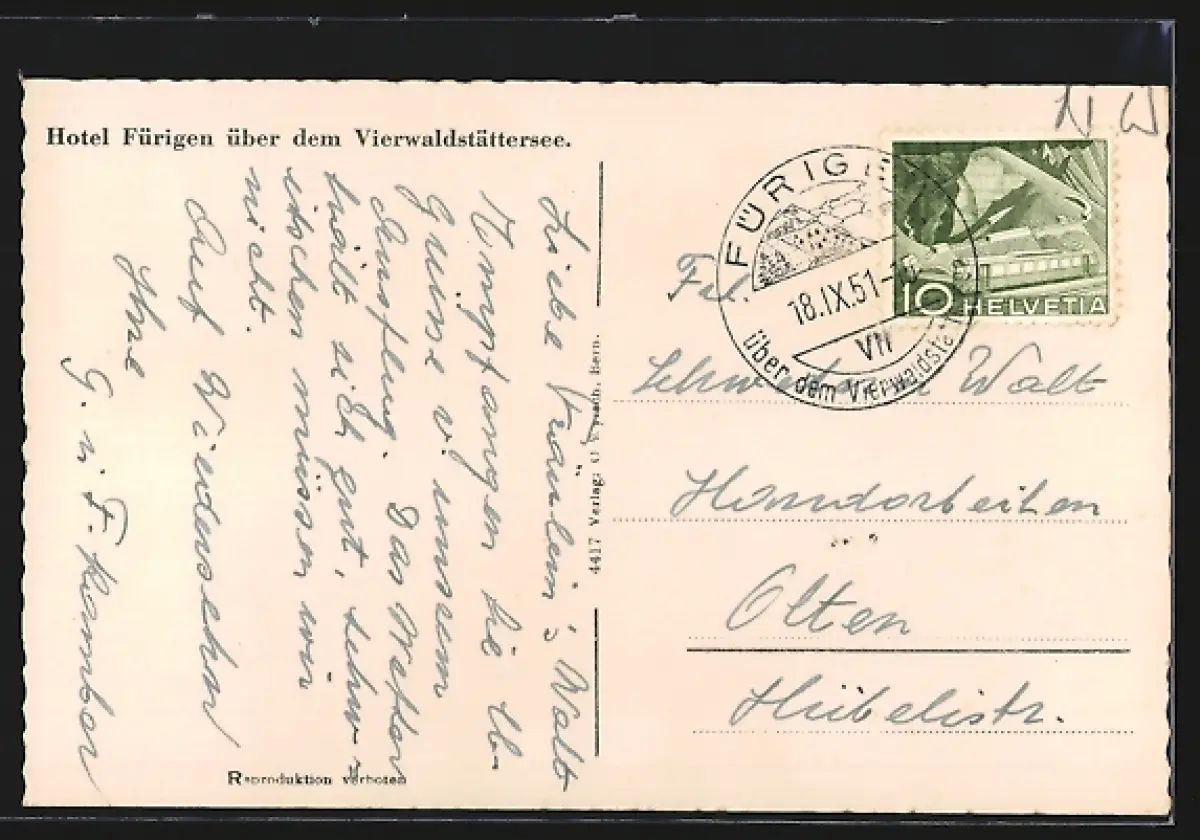 Hotel Fürigen über dem Vierwaldstättersee.
NW
FÜRIGEN
18.IX.51
VII
über dem Vierwaldst
10 HELVETIA
Liebe Fräulein's Walt
Empfangen Sie lb.
Grüsse v. unserem
Ausflug. Das Wetter
hält sich gut, schw
itschen müssen wir
nicht.
Auf Wiedersehen
Ihre
G. u. F. Kamber
4417 Verlag: Bern.
Frl.
Schwestern Walt
Handarbeiten
Olten
Hübelistr.
Reproduktion verboten